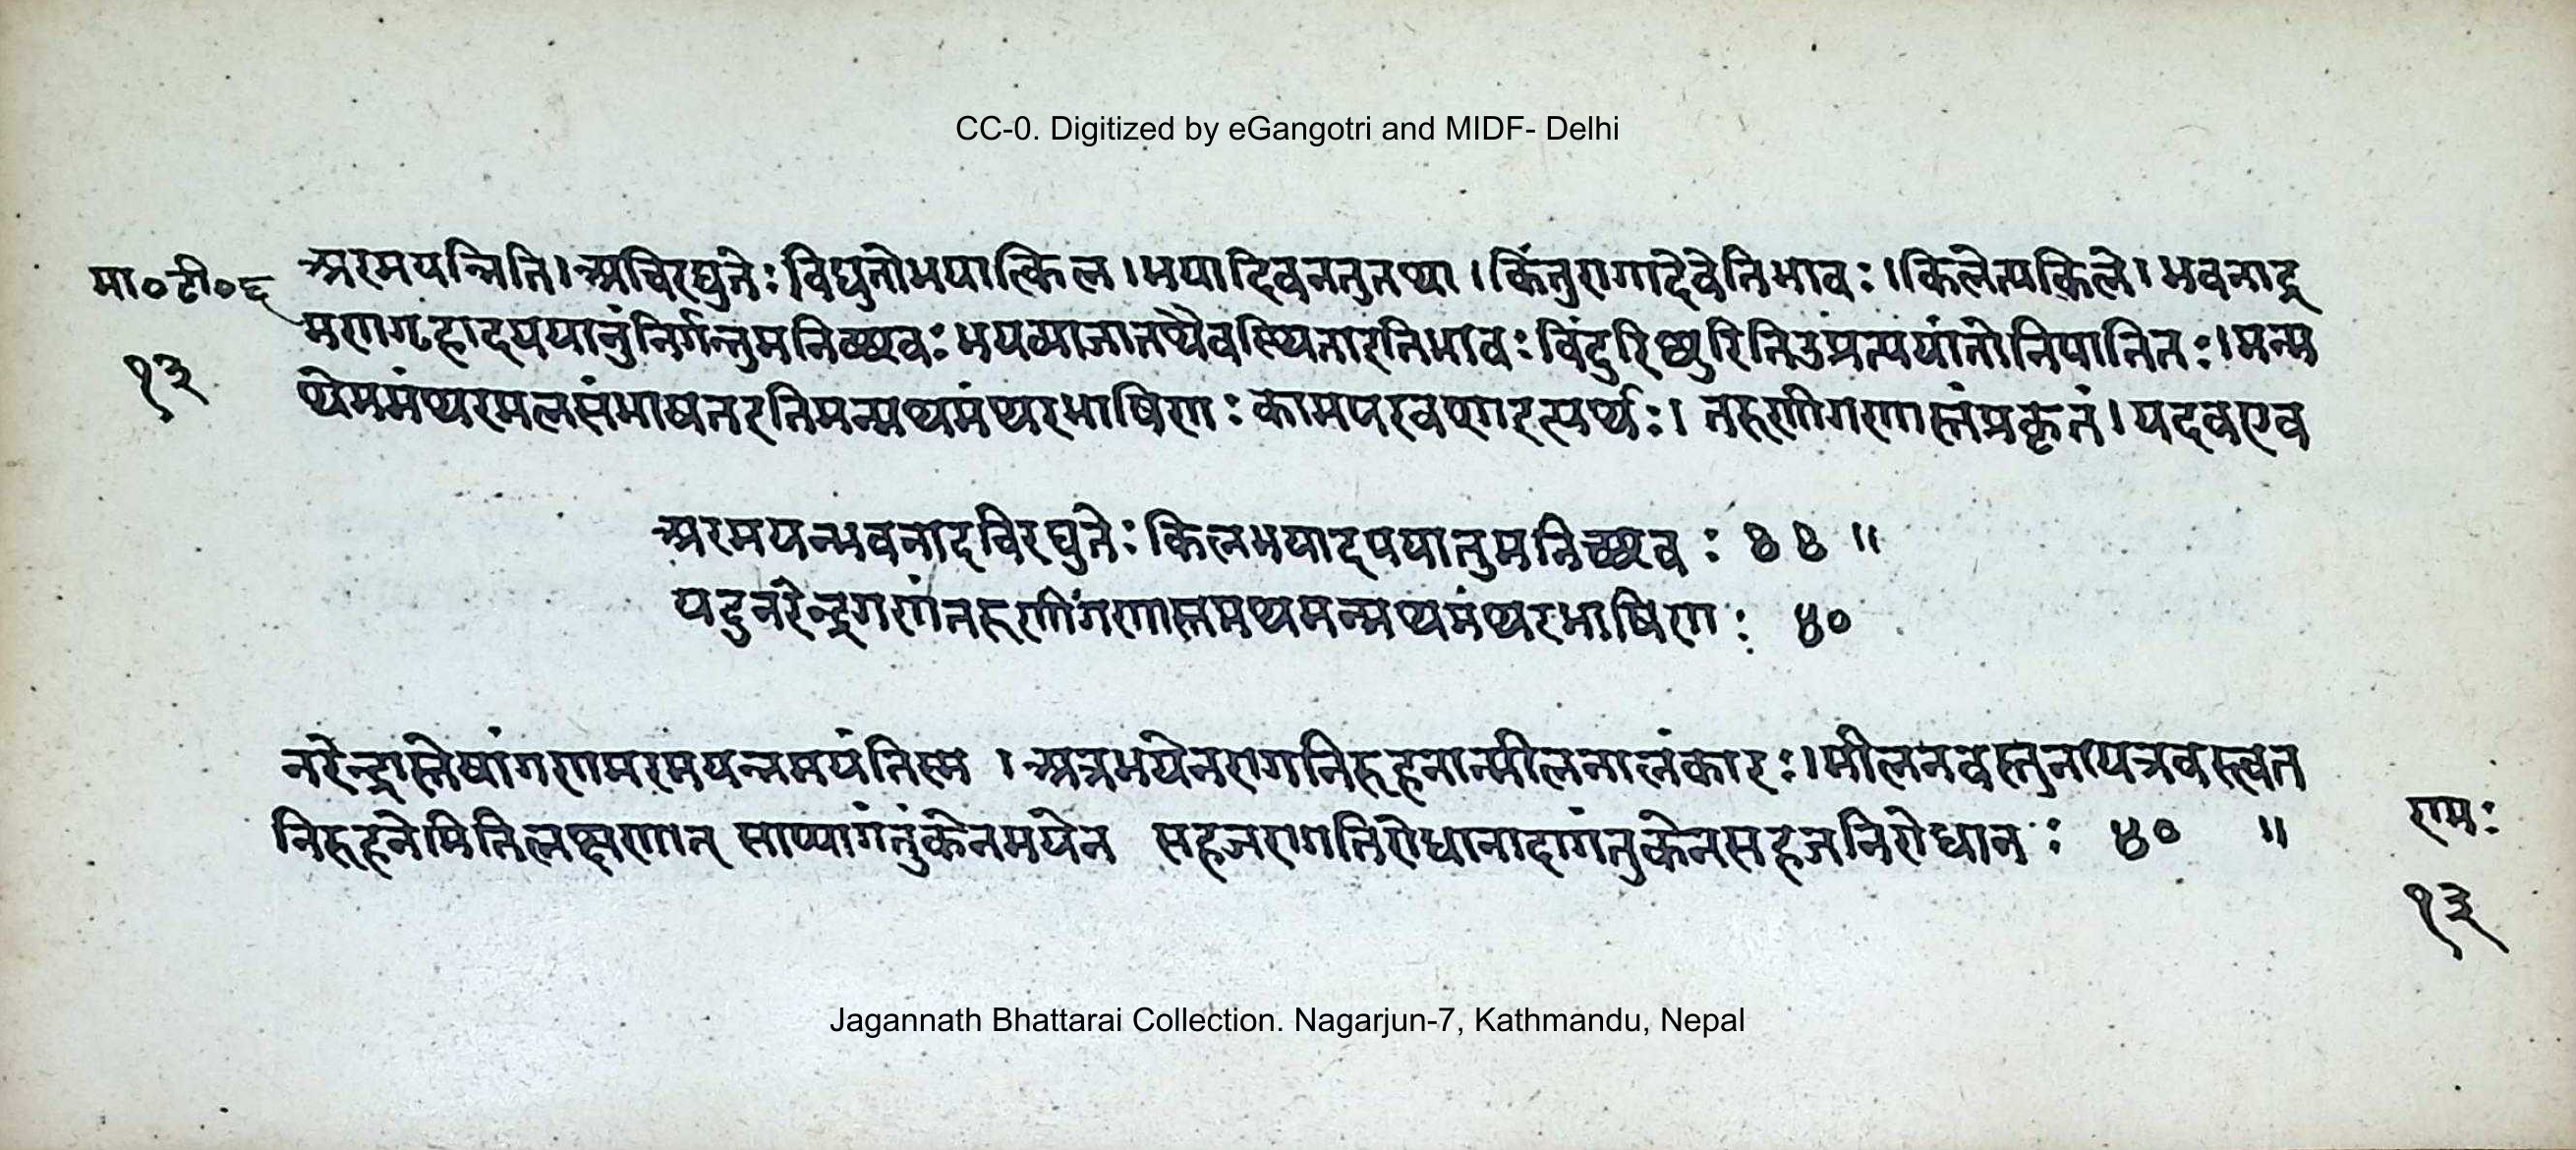 CC-0. Digitized by eGangotri and MIDF- Delhi
मा०टी०६ अरमयन्निति।अचिरद्युतेःविद्युतोभयात्किल।भयादिवनतुतथा।किंतुरागादेवेतिभावः।किलेत्यकिले।भवनाद्र
१३ मणगृहादपयातुंनिर्गन्तुमनिच्छवःभयव्याजात्तथैवस्थिताइतिभावःविंदुरिछ्युरितिउप्रत्ययांतोनिपातितः।मन्म
थेममंथरमलसंभाषतइतिमन्मथमंथरभाषिणःकामपरवशाइत्यर्थः।तरुणीगणास्तंप्रकृतं।यदवएव
अरमयन्भवनादचिरद्युतेःकिलभयादपयातुमनिच्छवः४४॥
यदुनरेन्द्रगणंतरुणींगणास्तमथमन्मथमंथरभाषिणः४०
नरेन्द्रास्तेषांगणमरमयन्नमयंतिस्म।अत्रभयेनरागनिरूहनान्मीलनालंकारः।मीलनवस्तुनायत्रवस्त्वत
निरूहनेमितिलक्षणात् साप्यागंतुंकेनभयेन सहजरागतिरोधानादागंतुकेनसहजनिरोधानः४० ॥
रामः
१३
Jagannath Bhattarai Collection. Nagarjun-7, Kathmandu, Nepal